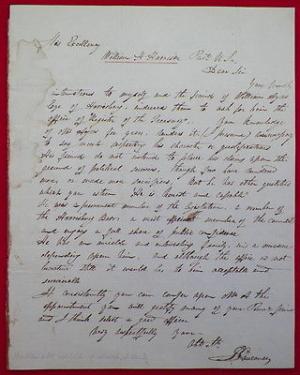 His Excellency
William H. Harrison Pres. U.S.
Dear Sir
Your friendly
intimations to myself and the friends of William Ayres
Esqr of Harrisburg, induced them to ask for him the
office of Register of the Treasury. Your knowledge
of Mr Ayres
to say much respecting his character & qualifications
His friends do not intend to place his claims upon the
ground of political services, though few have rendered
more or made more sacrifices. But he has other qualities
which you esteem. He is honest and capable
He was a prominent member of the legislature, a member of
the Harrisburg Bar, a most efficient member of the council
and enjoys a full share of public confidence
He has an amiable and interesting family, in a measure
depending upon him, and although the office is not
lucrative still it would be to him acceptable and
If consistently you can confer upon Mr A the
appointment you will gratify many of your friends
and I think select a good officer.
Very respectfully yours